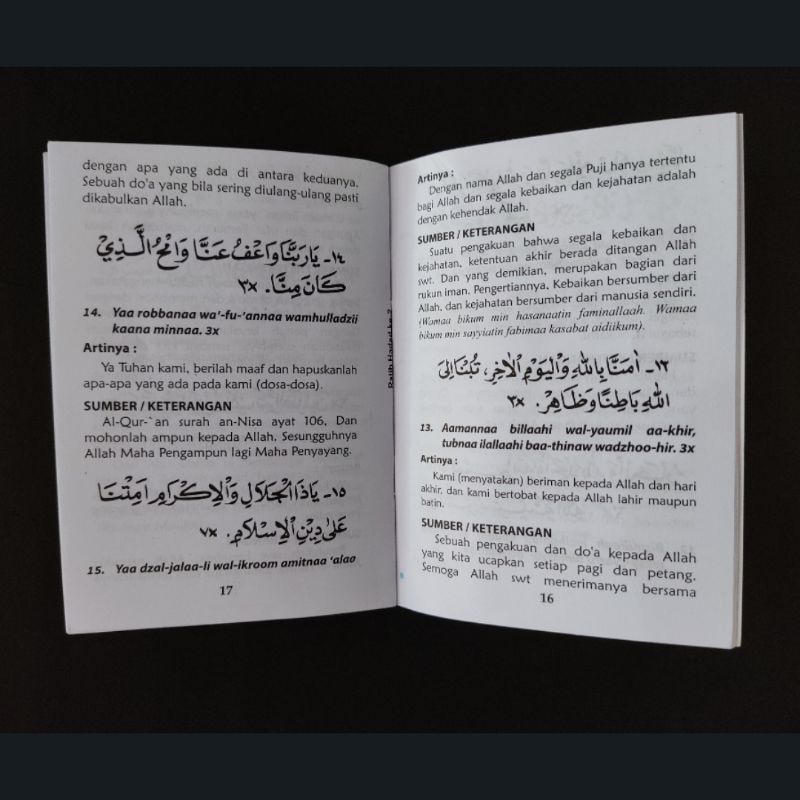 Artinya :
Dengan nama Allah dan segala Puji hanya tertentu
bagi Allah dan segala kebaikan dan kejahatan adalah
dengan kehendak Allah.
SUMBER / KETERANGAN
Suatu pengakuan bahwa segala kebaikan dan
kejahatan, ketentuan akhir berada ditangan Allah
swt. Dan yang demikian, merupakan bagian dari
rukun iman. Pengertiannya, Kebaikan bersumber dari
Allah, dan kejahatan bersumber dari manusia sendiri.
(Wamaa bikum min hasanaatin faminallaah. Wamaa
bikum min sayyiatin fabimaa kasabat aidiikum).
١٣- اٰمَنَّا بِاللّٰهِ وَالْيَوْمِ الْاٰخِرِ، تُبْنَا اِلَى
اللّٰهِ بَاطِنًا وَظَاهِرْ. ٣x
13. Aamannaa billaahi wal-yaumil aa-khir,
tubnaa ilallaahi baa-thinaw wadzhoo-hir. 3x
Artinya :
Kami (menyatakan) beriman kepada Allah dan hari
akhir, dan kami bertobat kepada Allah lahir maupun
batin.
SUMBER / KETERANGAN
Sebuah pengakuan dan do'a kepada Allah
yang kita ucapkan setiap pagi dan petang.
Semoga Allah swt menerimanya bersama
16
dengan apa yang ada di antara keduanya.
Sebuah do'a yang bila sering diulang-ulang pasti
dikabulkan Allah.
١٤- يَارَبَّنَا وَاعْفُ عَنَّا وَامْحُ الَّذِيْ
كَانَ مِنَّا. ٣x
14. Yaa robbanaa wa'-fu-'annaa wamhulladzii
kaana minnaa. 3x
Artinya :
Ya Tuhan kami, berilah maaf dan hapuskanlah
apa-apa yang ada pada kami (dosa-dosa).
SUMBER / KETERANGAN
Al-Qur-`an surah an-Nisa ayat 106, Dan
mohonlah ampun kepada Allah, Sesungguhnya
Allah Maha Pengampun lagi Maha Penyayang.
١٥- يَاذَا الْجَلَالِ وَالْاِكْرَامِ اَمِتْنَا
عَلٰى دِيْنِ الْاِسْلَامِ. ٧x
15. Yaa dzal-jalaa-li wal-ikroom amitnaa 'alaa
17
Ratib Hadad ke 2